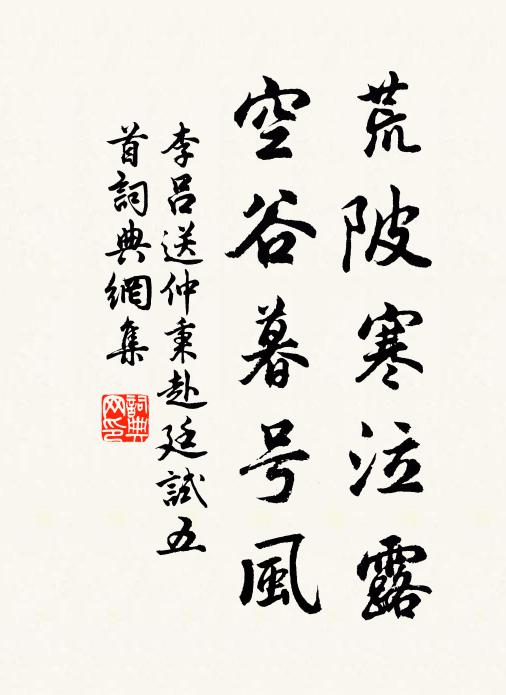 荒陂寒泣露
空谷暮号風
李呂送仲秉赴廷試五
首詞典網集
詞典
网印